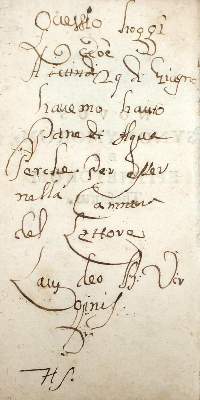 Questo hoggi
cioè
29 di Giugno
havemo hauto
Pane et Aqua
Perche per esser
nella camera
del Lettore
Laus deo B: Vir
ginis
H S.